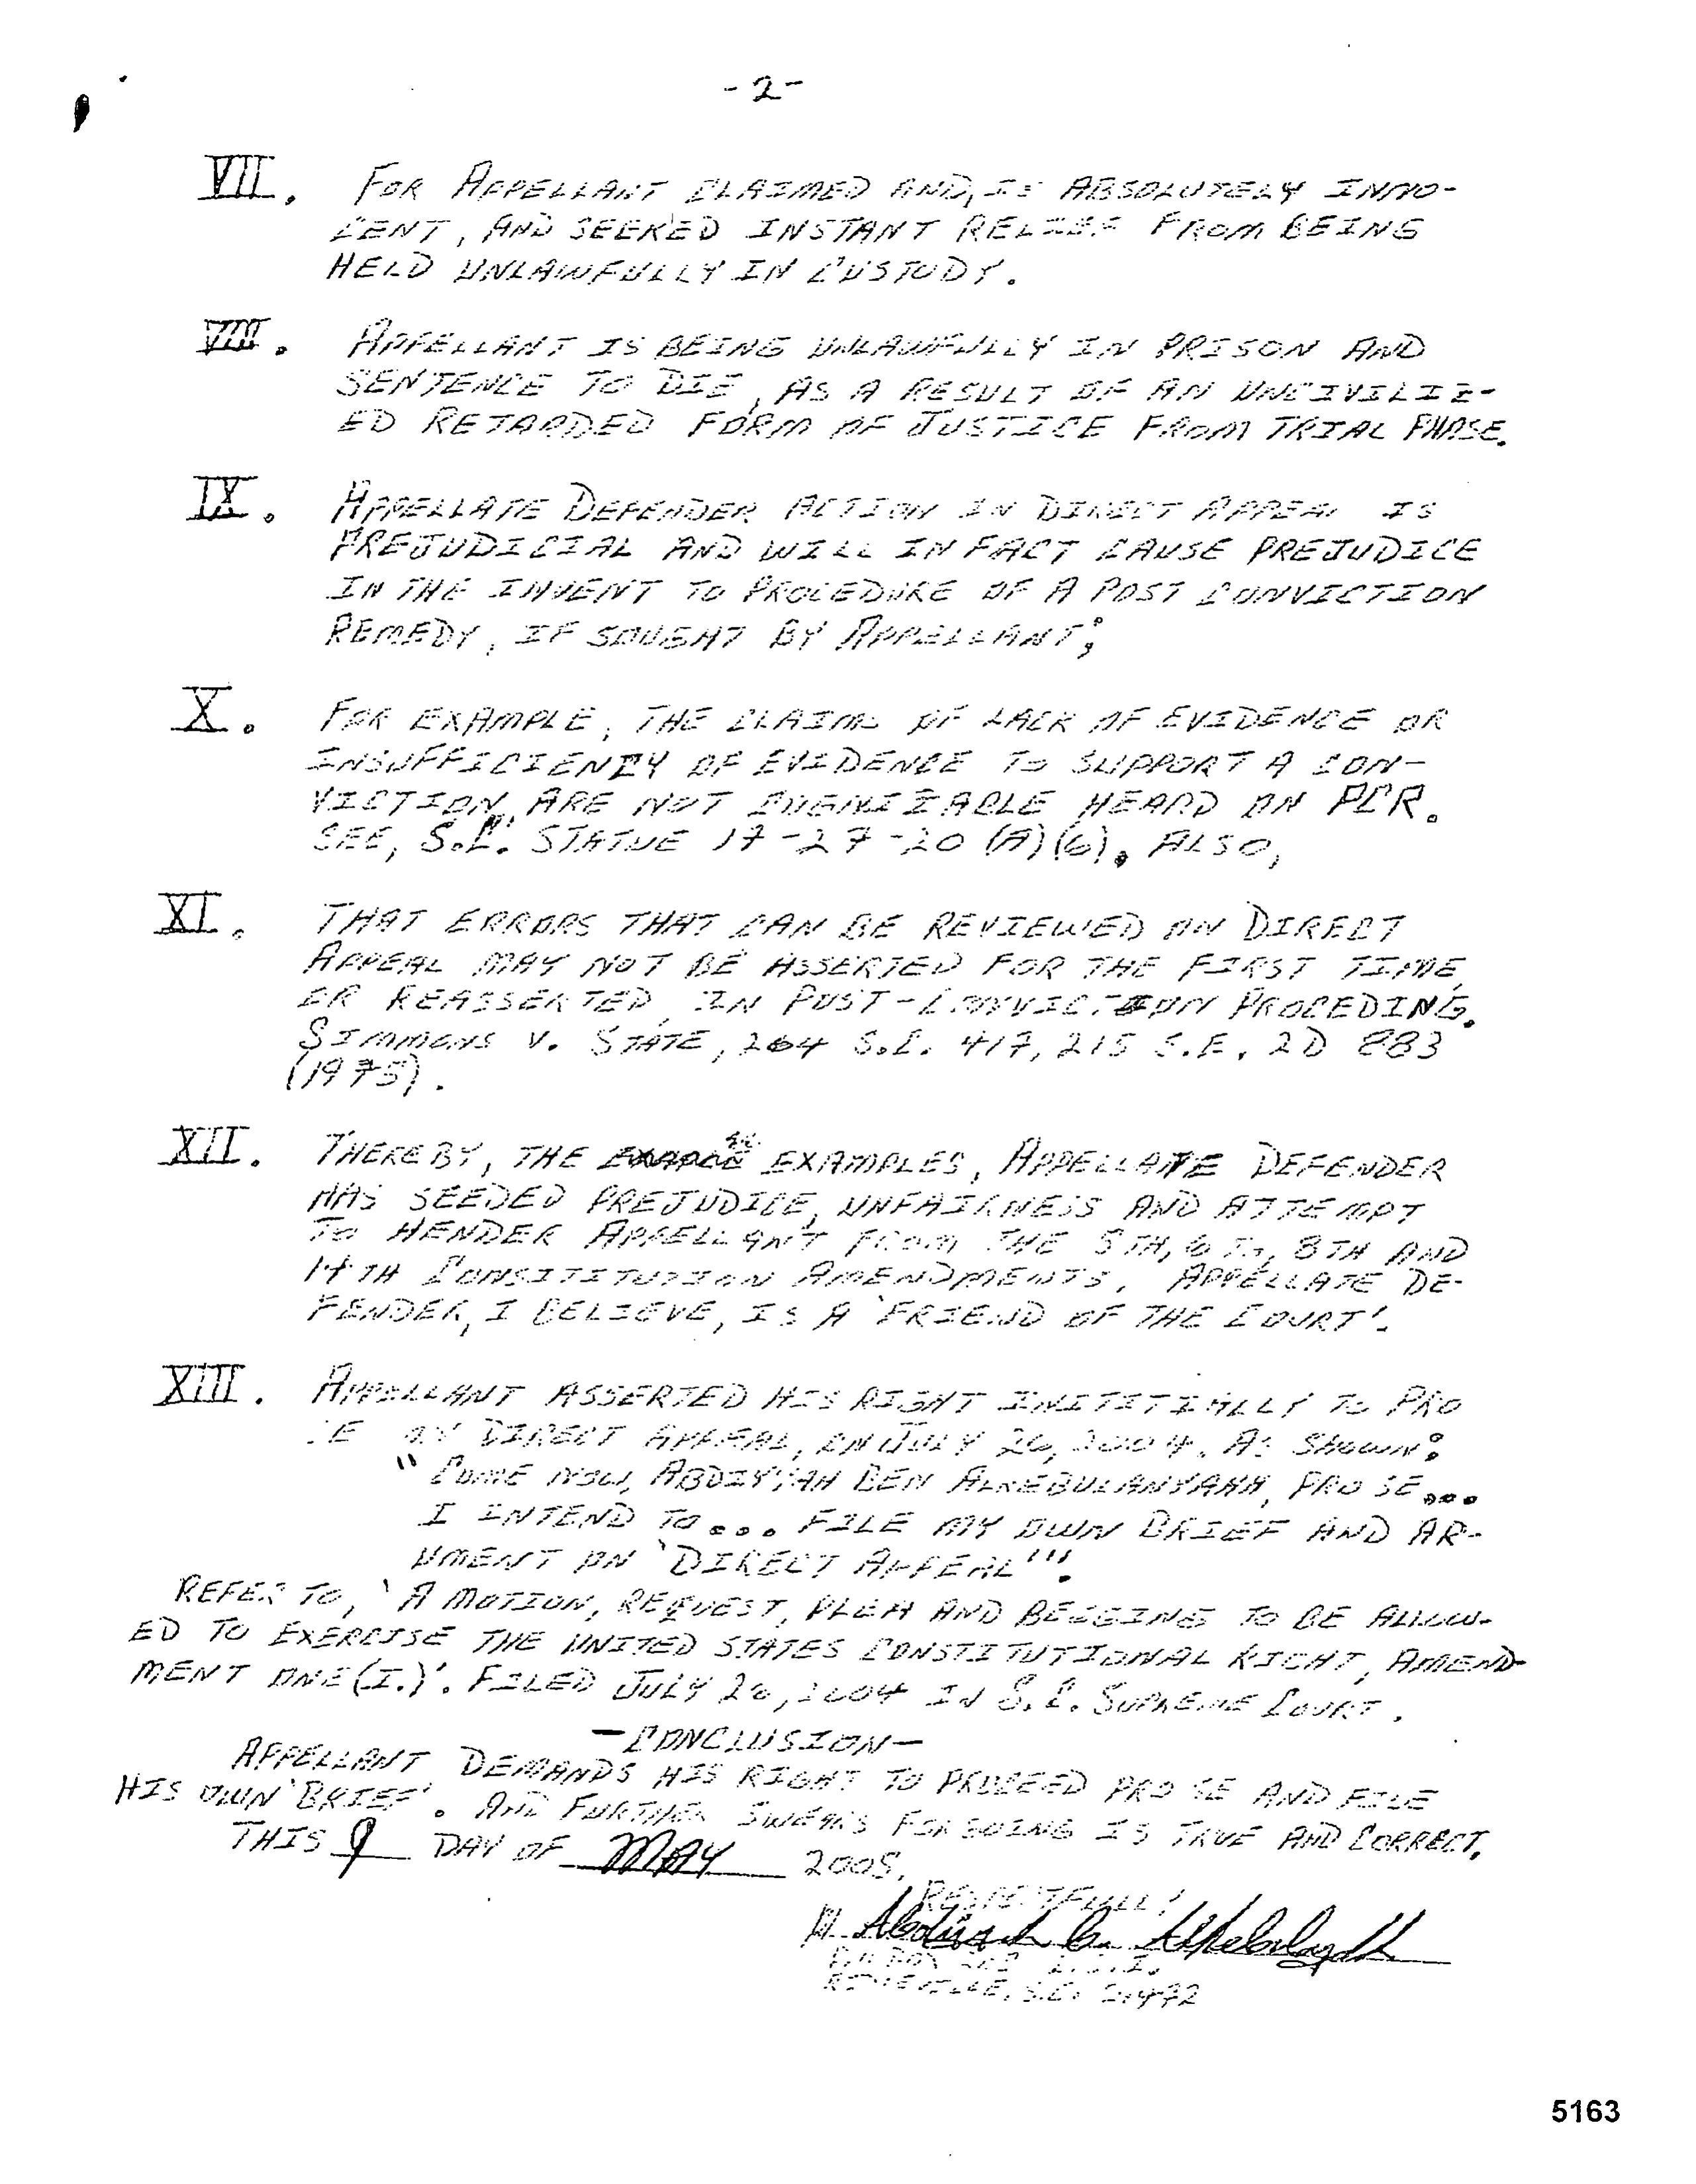 -2-
VII. FOR APPELLANT CLAIMED AND, IS ABSOLUTELY INNO-
CENT, AND SEEKED INSTANT RELIEF FROM BEING
HELD UNLAWFULLY IN CUSTODY.
VIII. APPELLANT IS BEING UNLAWFULLY IN PRISON AND
SENTENCE TO DIE, AS A RESULT OF AN UNCIVILIZ-
ED RETARDED FORM OF JUSTICE FROM TRIAL PHASE.
IX. APPELLATE DEFENDER ACTION IN DIRECT APPEAL IS
PREJUDICIAL AND WILL IN FACT CAUSE PREJUDICE
IN THE INVENT TO PROCEDURE OF A POST CONVICTION
REMEDY, IF SOUGHT BY APPELLANT;
X. FOR EXAMPLE, THE CLAIMS OF LACK OF EVIDENCE OR
INSUFFICIENCY OF EVIDENCE TO SUPPORT A CON-
VICTION, ARE NOT HEARD ON PCR.
SEE, S.C. STATUE 17-27-20 (A)(6). ALSO,
XI. THAT ERRORS THAT CAN BE REVIEWED ON DIRECT
APPEAL MAY NOT BE ASSERTED FOR THE FIRST TIME,
OR REASSERTED, IN POST-CONVICTION PROCEDING.
SIMMONS V. STATE, 264 S.C. 417, 215 S.E. 2D 883
(1975).
XII. THEREBY, THE EXAMPLES, APPELLATE DEFENDER
HAS SEEDED PREJUDICE, UNFAIRNESS AND ATTEMPT
TO HENDER APPELLANT FROM THE 5TH, 6TH, 8TH AND
14TH CONSTITUTION AMENDMENTS. APPELLATE DE-
FENDER, I BELIEVE, IS A 'FRIEND OF THE COURT'.
XIII. APPELLANT ASSERTED HIS RIGHT INITITIALLY TO PRO
SE BY DIRECT APPEAL, ON JULY 26, 2004. AS SHOWN:
"COME NOW, BEN PRO SE...
I INTEND TO... FILE MY OWN BRIEF AND AR-
UMENT ON 'DIRECT APPEAL'".
REFER TO, 'A MOTION, REQUEST, PLEA AND BEGGING TO BE ALLOW-
ED TO EXERCISE THE UNITED STATES CONSTITUTIONAL RIGHT, AMEND-
MENT ONE (I.)'. FILED JULY 2004 IN S.C. SUPREME COURT.
-CONCLUSION-
APPELLANT DEMANDS HIS RIGHT TO PROCEED PRO SE AND FILE
HIS OWN 'BRIEF'. AND FURTHER SWEARS FORGOING IS TRUE AND CORRECT.
THIS 9 DAY OF MAY 2005.
RESPECTFULLY
S.C. 29472
5163